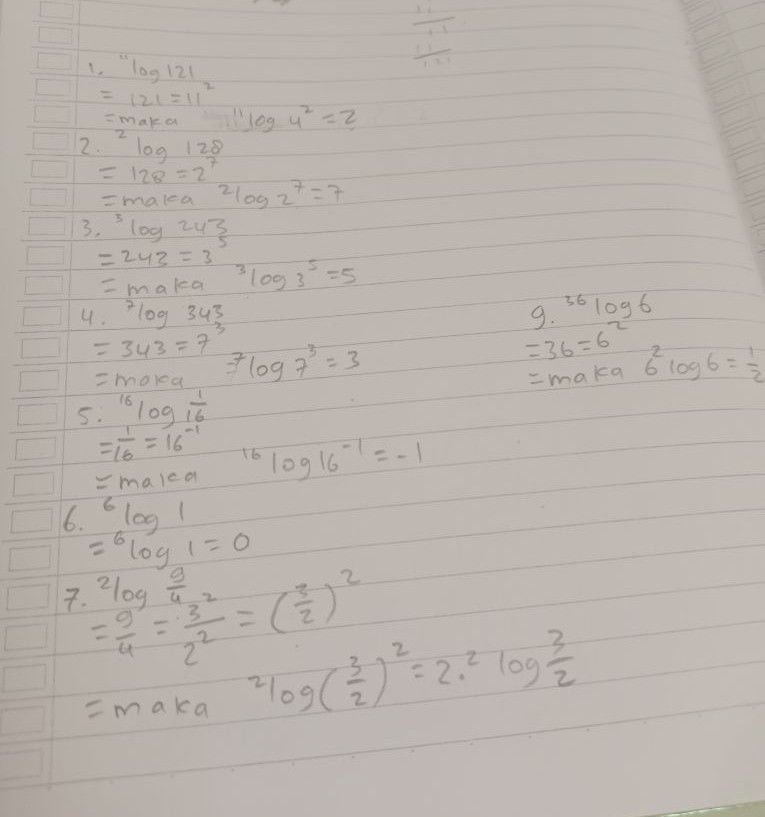 1. ¹¹log 121
= 121 = 11²
= maka ¹¹log 4² = 2
2. ²log 128
= 128 = 2⁷
= maka ²log 2⁷ = 7
3. ³log 243
= 243 = 3⁵
= maka ³log 3⁵ = 5
4. ⁷log 343
= 343 = 7³
= maka ⁷log 7³ = 3
5. ¹⁶log 1/16
= 1/16 = 16⁻¹
= maka ¹⁶log 16⁻¹ = -1
6. ⁶log 1
= ⁶log 1 = 0
7. ²log 9/4
= 9/4 = 3²/2² = (3/2)²
= maka ²log (3/2)² = 2.²log 3/2
9. ³⁶log 6
= 36 = 6²
= maka 6²log 6 = 1/2